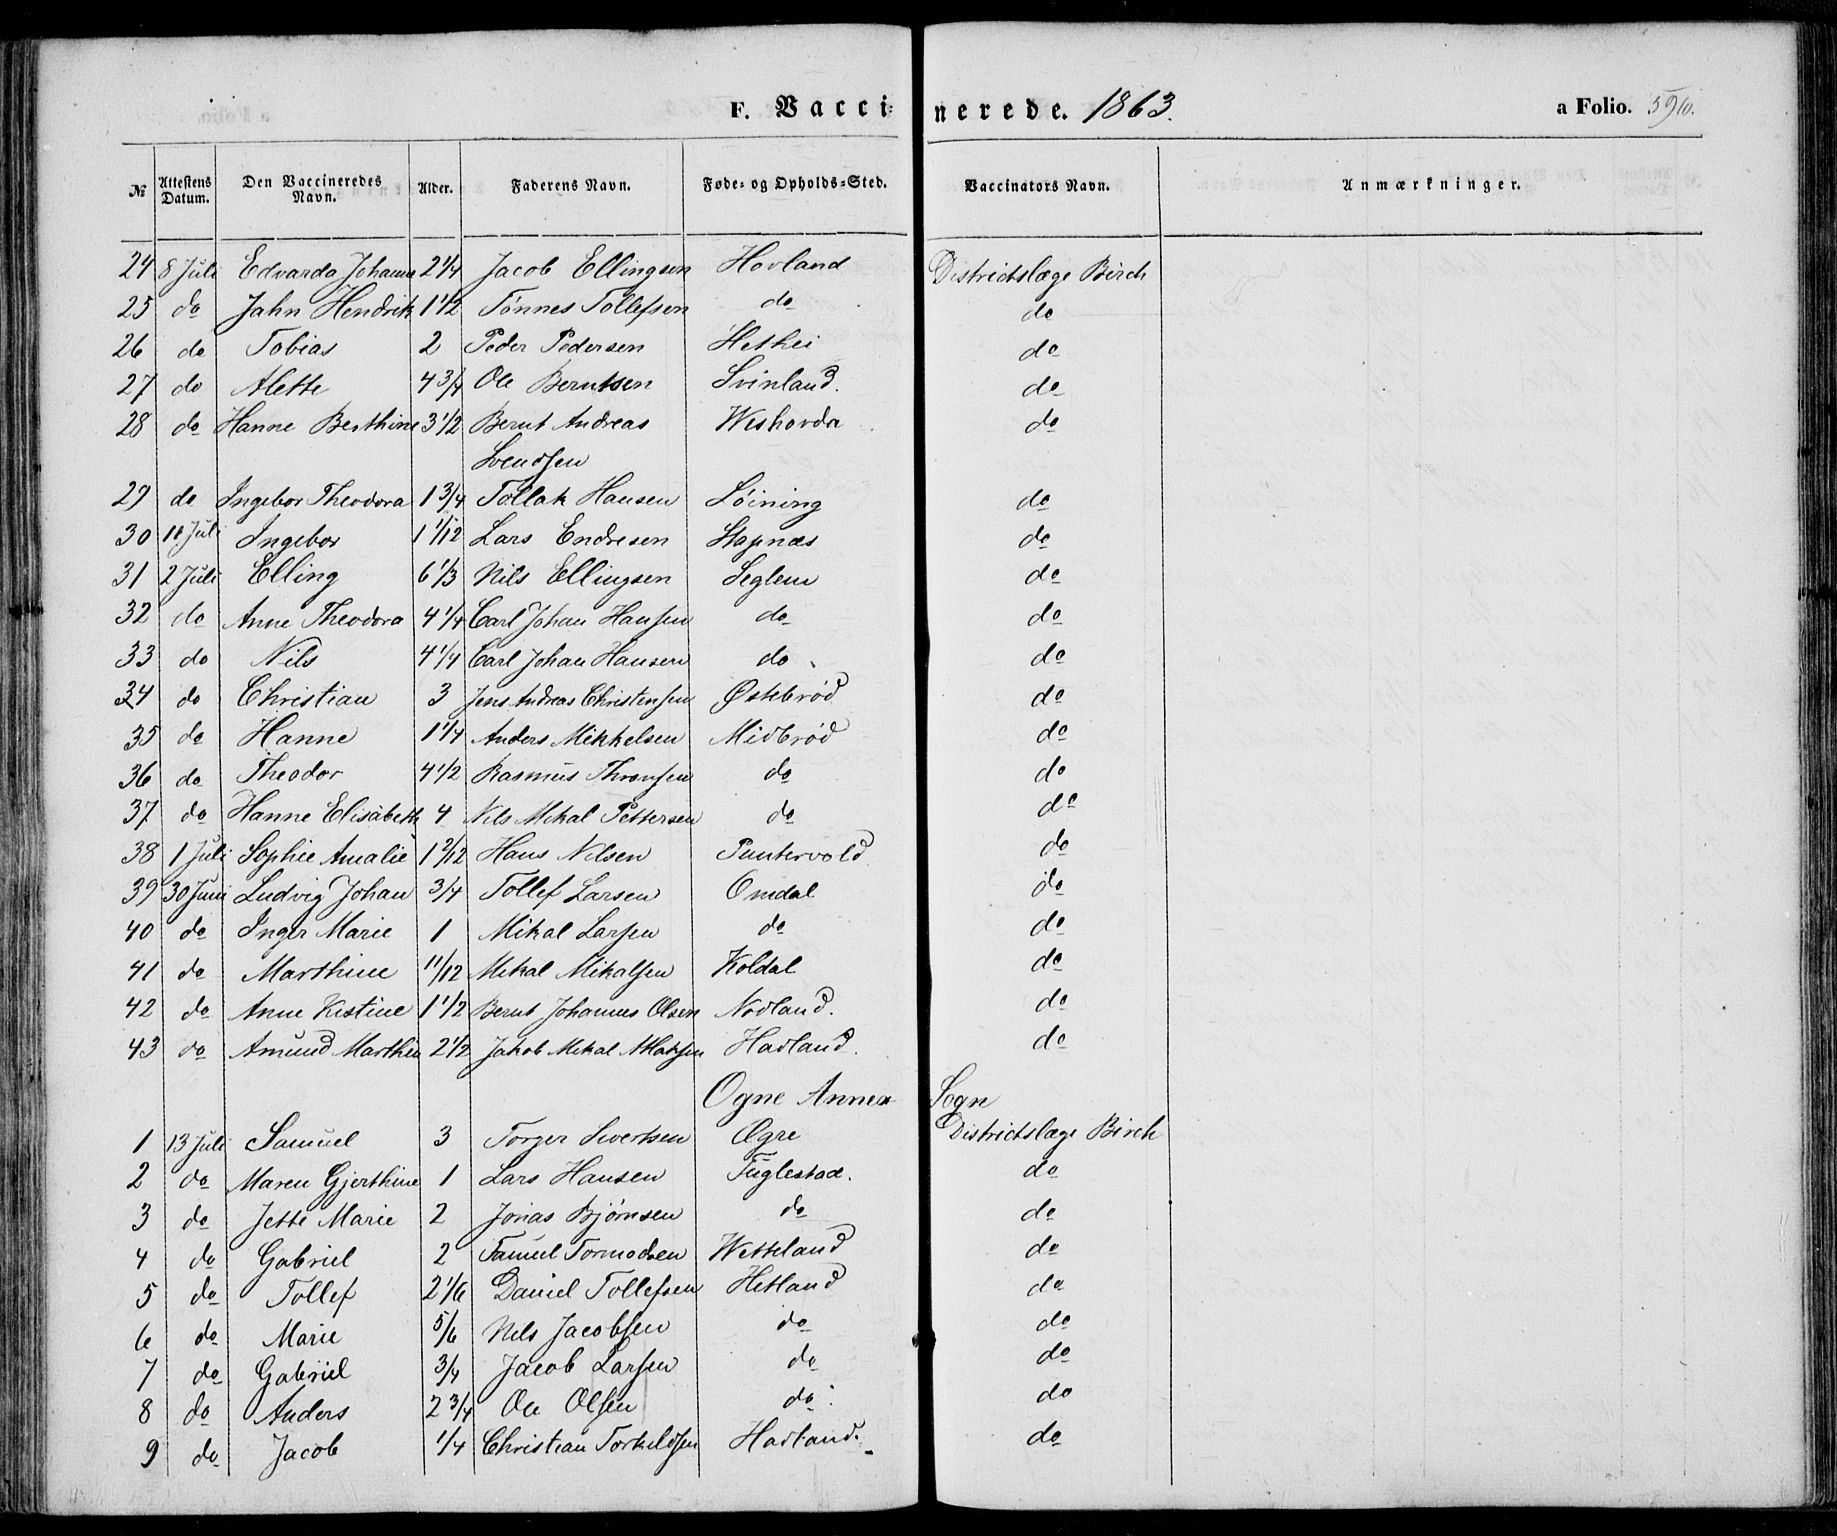 F. Vaccinerede. 1863. a Folio. 590.
№ Attestens Datum. Den Vaccineredes Navn. Alder. Faderens Navn. Føde- og Opholds-Sted. Vaccinators Navn. Anmærkninger.
24 8 Juli Edvarda Johanne 2 1/4 Jacob Ellingsen Hovland Districtslæge Birch
25 do Jahn Hendrik 1 1/2 Tönnes Tollefsen do do
26 do Tobias 2 Peder Pedersen Hethei do
27 do Alette 4 3/4 Ole Berntsen Svinland. do
28 do Hanne Berthine 3 1/2 Bernt Andreas Weshovda do
Svendsen
29 do Ingebor Theodora 1 3/4 Tollak Hansen Löining do
30 11 Juli Ingebor 1 1/12 Lars Endresen Stapnæs do
31 2 Juli Elling 6 1/3 Nils Ellingsen Seglem do
32 do Anne Theodora 4 1/4 Carl Johan Hansen do do
33 do Nils 4 1/4 Carl Johan Hansen do do
34 do Christian 3 Jens Andreas Christensen Østebrød do
35 do Hanne 1 1/4 Anders Mikkelsen Midbrød do
36 do Theodor 4 1/2 Rasmus Thronsen do do
37 do Hanne Elisabeth 4 Nils Mikal Pettersen do do
38 1 Juli Sophie Amalie 1 2/12 Hans Nilsen Puntervold do
39 30 Juni Ludvig Johan 3/4 Tollef Larsen Omdal do
40 do Inger Marie 1 Mikal Larsen do do
41 do Marthine 11/12 Mikal Mikalsen Koldal do
42 do Anne Kistine 1 1/2 Bernt Johannes Olsen Nodland. do
43 do Amund Marthin 2 1/2 Jakob Mikal Mikalsen Hadland. do
Ogne Annex Sogn
1 13 Juli Samuel 3 Torger Sivertsen Ogre Districtslæge Birch
2 do Maren Gjerthine 1 Lars Hansen Fuglestad. do
3 do Jette Marie 2 Jonas Bjørnsen do do
4 do Gabriel 2 Samuel Tormodsen Wetteland do
5 do Tollef 2 1/6 Daniel Tollefsen Hetland do
6 do Marie 5/6 Nils Jacobsen do do
7 do Gabriel 3/4 Jacob Larsen do do
8 do Anders 2 3/4 Ole Olsen do. do
9 do Jacob 1/4 Christian Torkildsen Hadland. do